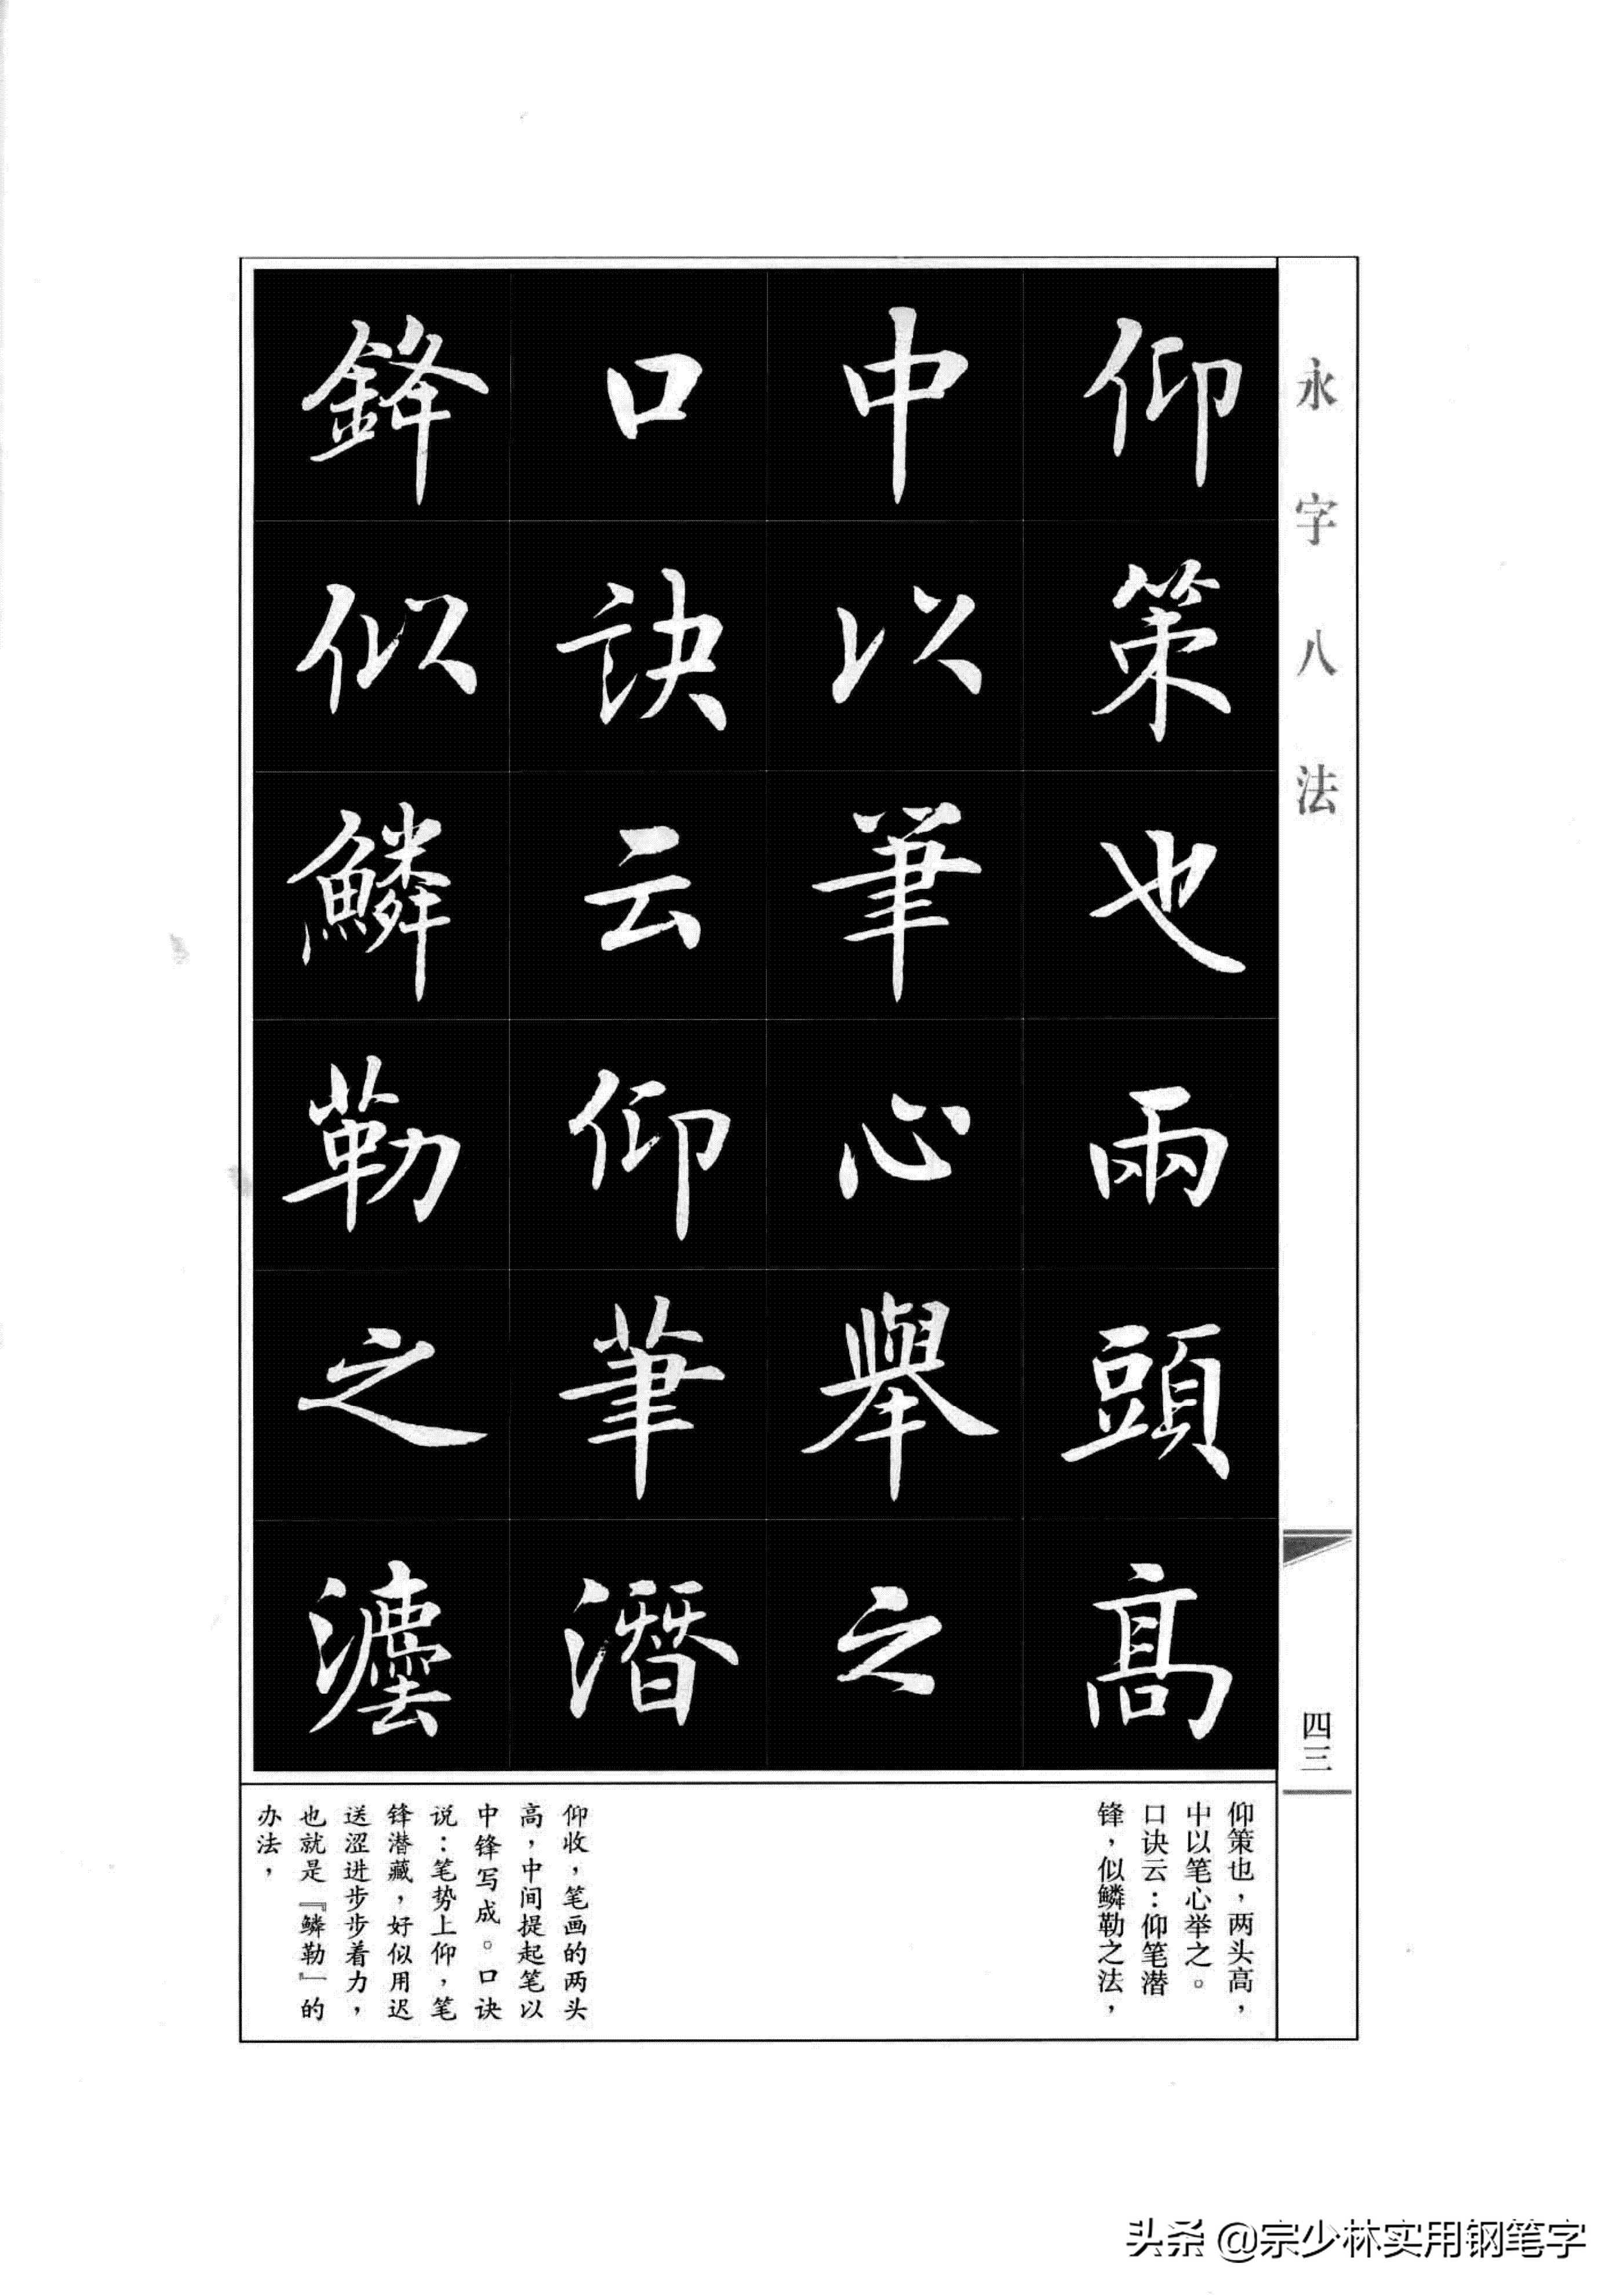 永字八法
四三
仰策也兩頭高
中以筆心舉之
口訣云仰筆潛
鋒似鱗勒之灋
仰策也，两头高，
中以笔心举之。
口诀云：仰笔潜
锋，似鳞勒之法，
仰收，笔画的两头
高，中间提起笔以
中锋写成。口诀
说：笔势上仰，笔
锋潜藏，好似用迟
送涩进步步着力，
也就是『鳞勒』的
办法，
头条@宗少林实用钢笔字